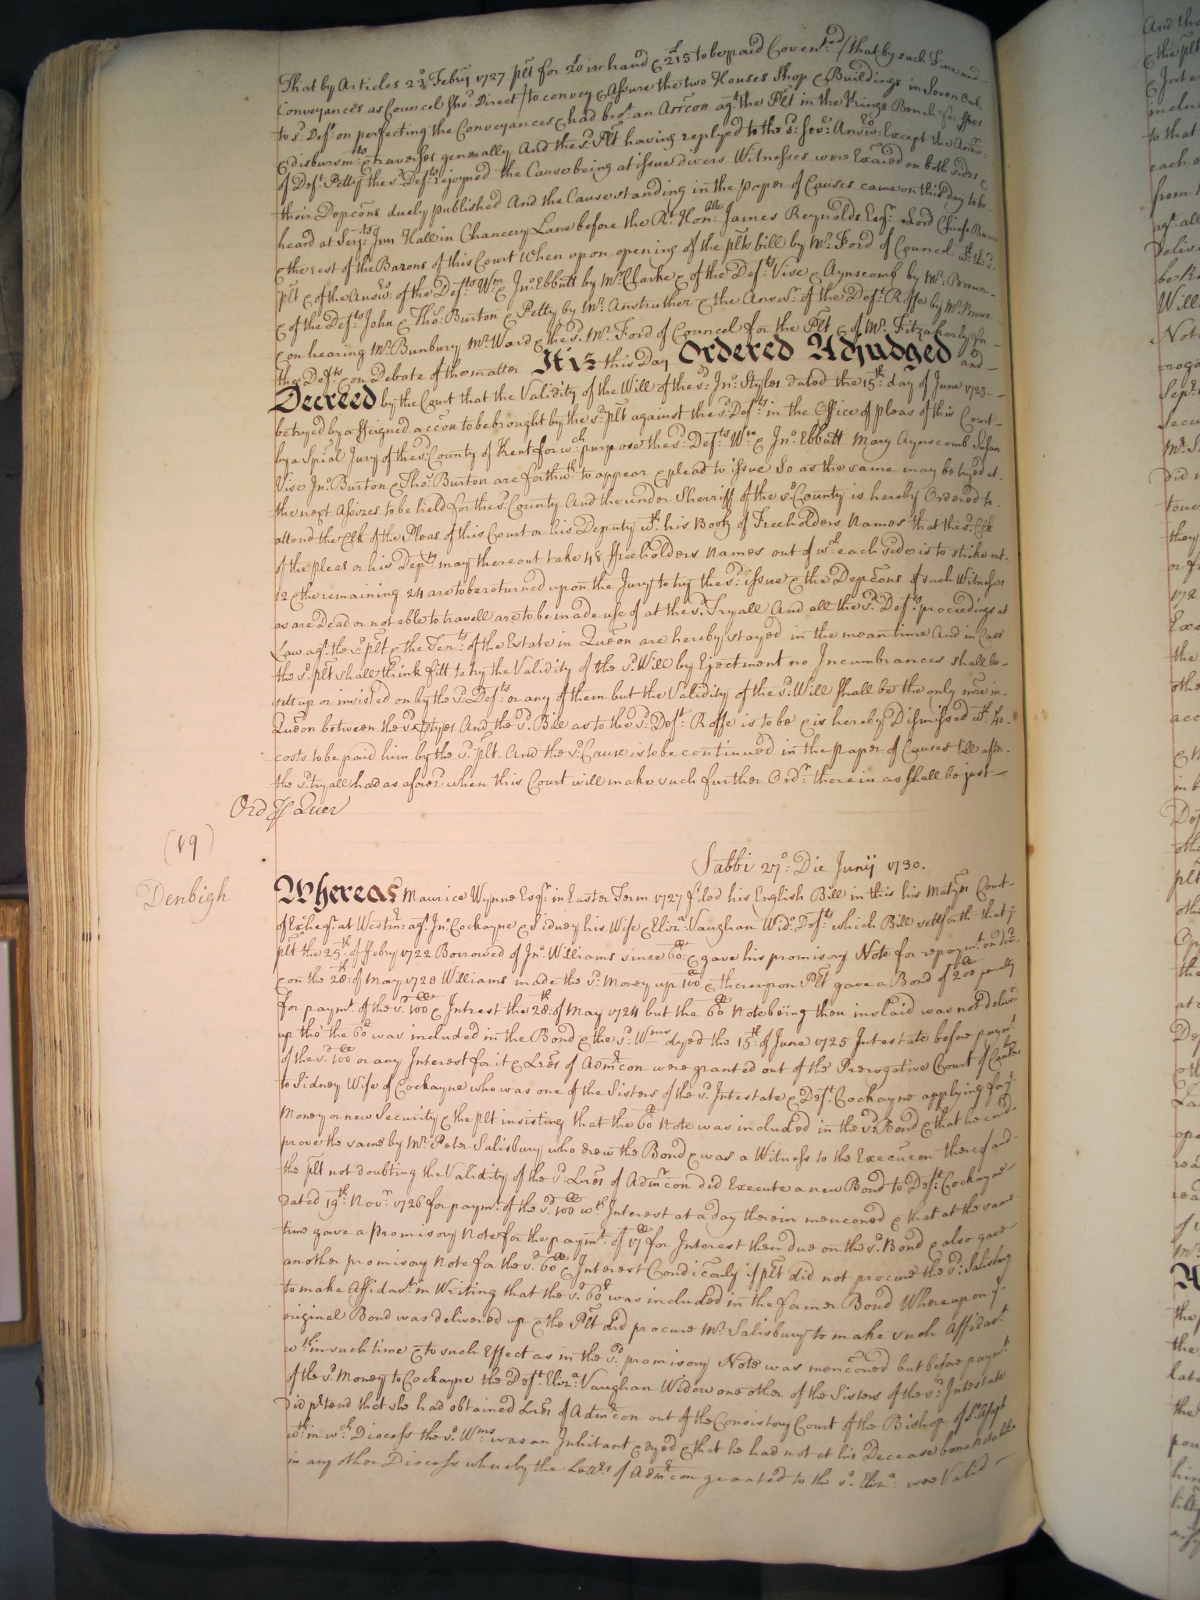 That by Articles 22d Febry 1727 plt for 20 in hand & 215 to be paid Covented that by such Fine and
Conveyances as Council sho.d Direct to convey & Assure the two Houses Shop & Buildings in Seven Oak
to s.d Def.t on perfecting the Conveyances & had bro.t an Accon ag.t the Plt in the Kings Bench for
& disbursm.ts & traverses generally And the s.d Plt having replyed to the s.d sev.l Answ.rs Except the Answ.r
of Def.t Petty & the s.d Def.ts rejoyned the Cause being at issue divers Witnesses were Exaied on both sides &
their Depcons duely published And the Cause standing in the paper of Causes came on this day to be
heard at Serj.ts Inn Hall in Chancery Lane before the R.t Hon.ble James Reynolds Esq.r Lord Chief Baron
& the rest of the Barons of this Court When upon opening of the plts bill by M.r Ford of Councel w.th the s.d
plt & of the Answ.r of the Def.ts W.m & Jn.o Ebbutt by M.r Clarke & of the Def.ts Vise & Aynscomb by M.r Brown
& of the Def.ts John & Tho.s Burton & Petty by M.r Anstruther & the Answ.r of the Def.t Roffe by M.r
& on hearing M.r Bunbury M.r Ward & the s.d M.r Ford of Councel for the Plt & of M.r Fitzakerley for
the Def.ts & on Debate of the matter It is this Day Ordered Adjudged and
Decreed by the Court that the Validity of the Will of the s.d Jn.o Styles dated the 15.th day of June 1725
be tryed by a ffeigned accon to be brought by the s.d plt against the s.d Def.ts in the Office of pleas of this Court
by a Speial Jury of the s.d County of Kent for w.ch purpose the s.d Def.ts W.m & Jn.o Ebbutt Mary Aynscomb Susan
Vise Jn.o Burton & Tho.s Burton are forthw.th to appear & plead to issue so as the same may be tryed at
the next Assizes to be held for the s.d County And the under Sherriff of the s.d County is hereby Ordered to
attend the Clk of the Pleas of this Court or his Deputy w.th his Book of Freeholders Names that the s.d Clk
of the pleas or his Dep.ty may thereout take 48 ffreeholders names out of w.ch each side is to strike out
12 & the remaining 24 are to be returned upon the Jury to try the s.d issue & the Depcons of such Witnesses
as are Dead or not able to travell are to be made use of at the s.d Tryall And all the s.d Def.ts proceedings at
Law ag.t the s.d plt & the Ten.ts of the Estate in Queon are hereby stayed in the mean time And in Case
the s.d plt shall think fitt to try the Validity of the s.d Will by Ejectment no Incumbrances shall be
sett up or insisted on by the s.d Def.ts or any of them but the Validity of the s.d Will shall be the only in
Queon between the s.d ptyes And the s.d Bill as to the s.d Def.t Roffe is to be & is hereby Dismissed w.th
costs to be paid him by the s.d plt. And the s.d Cause is to be continued in the paper of Causes till after
the s.d tryall had as afores.d when this Court will make such further Ord.r therein as shall be just
Ord p Quer
(19)
Sabbi 27.o Die Junij 1730.
Denbigh
Whereas Maurice Wynne Esq.r in Easter Term 1727 filed his English Bill in this his Ma.tyes Court
of Excheq.r at Westm.r ag.t Jn.o Cockayne & Sidney his Wife & Eliz.a Vaughan Wid.o Def.ts which Bill setts forth that y.e
plt the 25.th of ffebry 1722 Borrowed of Jn.o Williams since 60 & gave his promisory Note for repaym.t
& on the 28.th of May 1723 Williams made the s.d Money up 100 & thereupon Plt gave a Bond of 200 penalty
for paym.t of the s.d 100 & Interest the 28.th of May 1724 but the 60 Note being then mislaid was not deliv.d
up tho' the 60 was included in the Bond & the s.d W.ms dyed the 15.th of June 1725 Intestate before paym.t
of the s.d 100 or any Interest for it & Lres of Admcon were granted out of the Prerogative Court of
to Sidney Wife of Cockayne who was one of the Sisters of the s.d Intestate & Def.t Cockayne applying for y.e
Money or new Security & the plt insisting that the 60 Note was included in the s.d Bond & that he cou.d
prove the same by M.r Peter Salisbury who drew the Bond & was a Witness to the Execucon thereof and
the plt not doubting the Validity of the s.d Lres of Admcon did Execute a new Bond to Def.t Cockayne
Dated 19.th Nov.r 1726 for paym.t of the s.d 100 w.th Interest at a day therein menconed & that at the same
time gave a Promisory Note for the paym.t of 17 for Interest then due on the s.d Bond & also gave
another promisory Note for the s.d 60 & Interest Condiconly if plt did not procure the s.d Salisbury
to make Affidav.t in Writing that the s.d 60 was included in the former Bond Whereupon y.e
original Bond was delivered up & the Plt did procure M.r Salisbury to make such Affidav.t
w.thin such time & to such Effect as in the s.d promisory Note was menconed but before paym.t
of the s.d Money to Cockayne the Def.t Eliz.a Vaughan Widow one other of the Sisters of the s.d Intestate
did ptend that she had obtained Lres of Admcon out of the Consistory Court of the Bishop of S.t Asaph
w.thin w.ch Diocess the s.d W.ms was an Inhitant & dyed & that he had not at his Decease bona notabilia
in any other Diocess whereby the Lett.rs of Admcon granted to the s.d Eliz.a were Valid